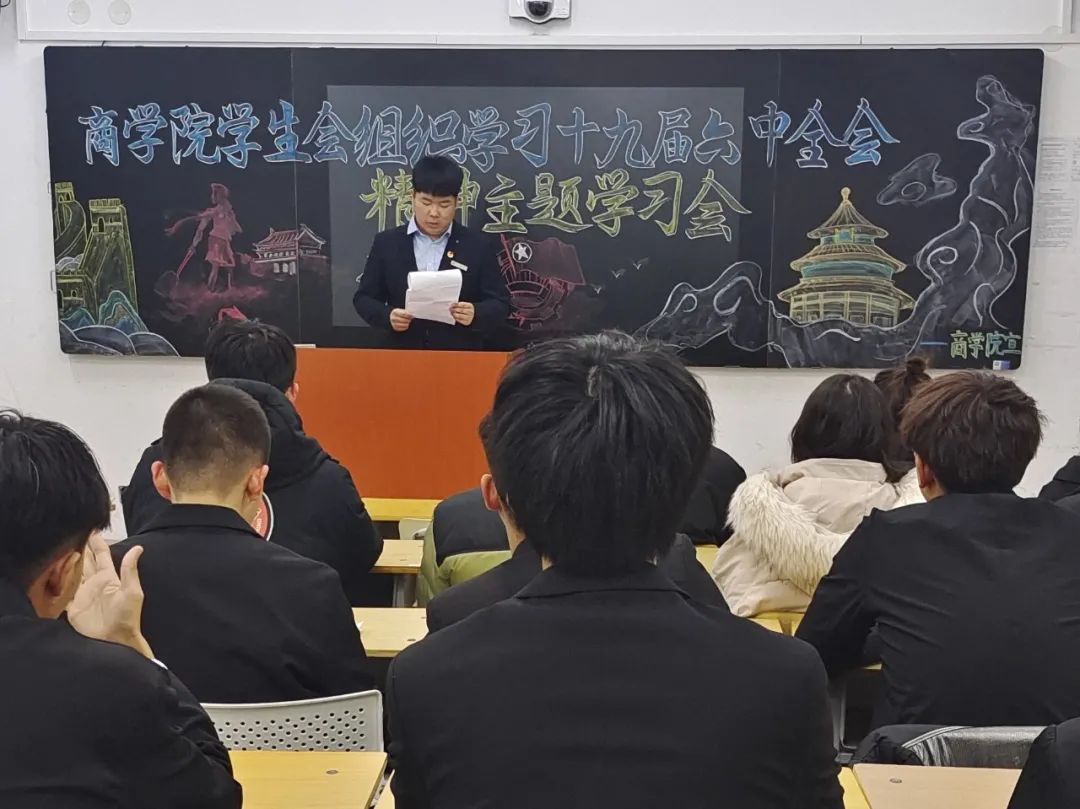 商学院学生会组织学习十九届六中全会
精神主题学习会
商学院宣